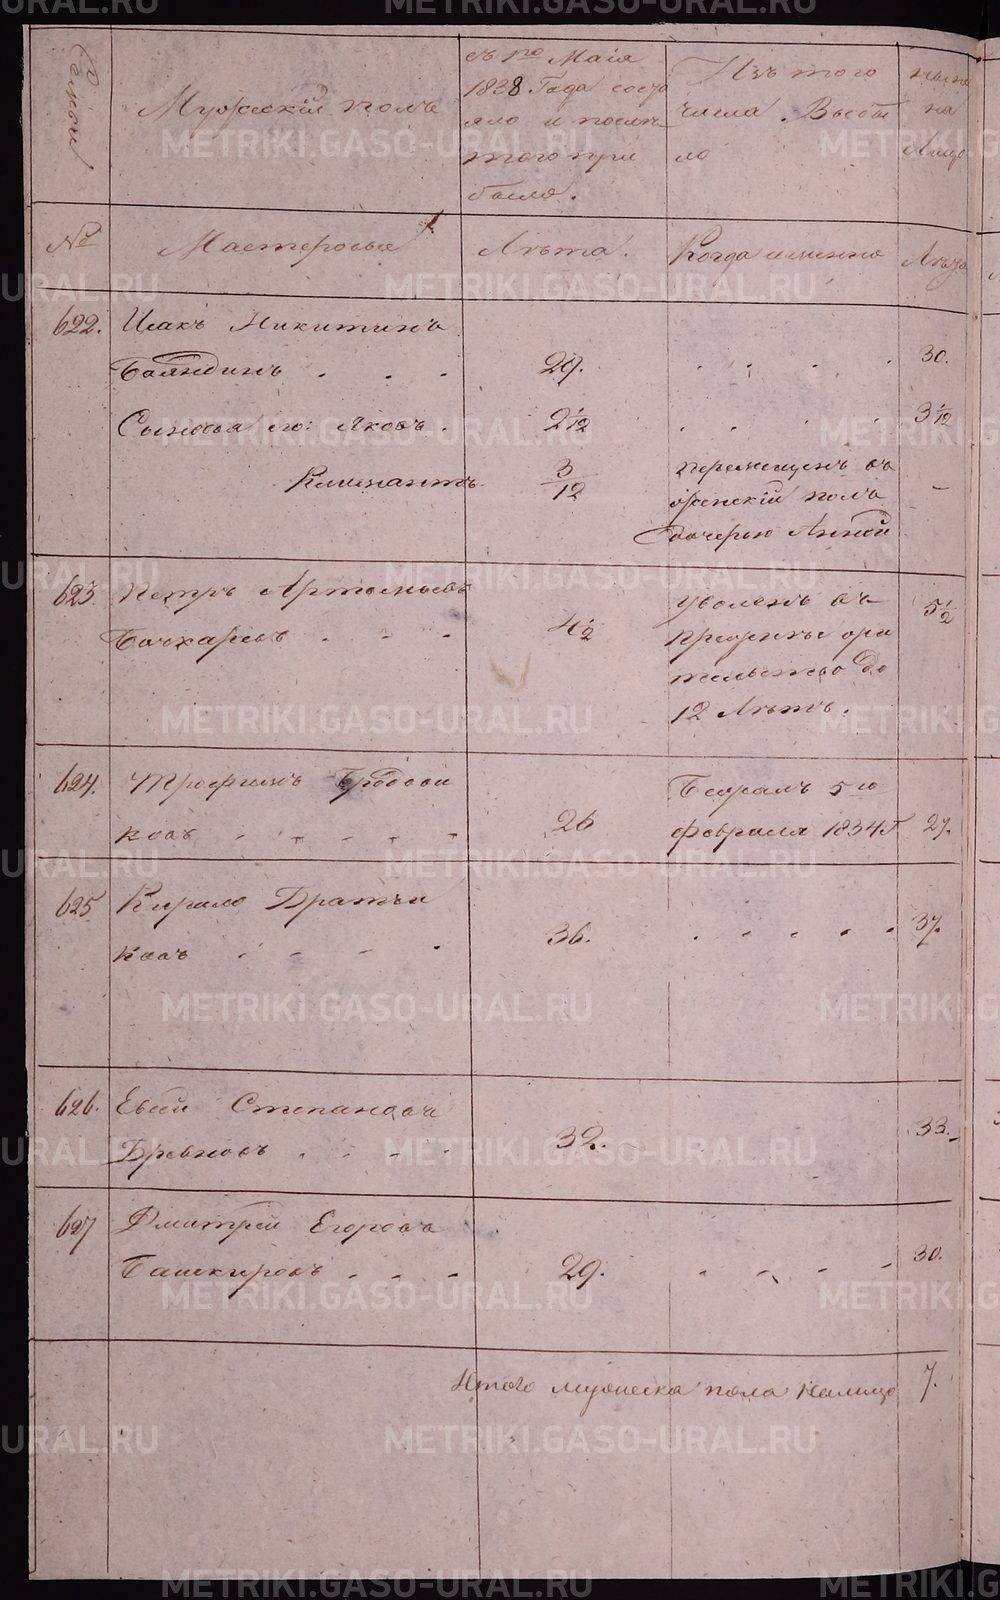 Семьи
Мужеский полъ
съ 1го Маiя
1838 Года состо
яло и после
того при
было.
Изъ того
числа Выбы
ло
ныне
на
Лицо
№
Мастеровые
Лѣта.
Когда именно
Лѣта
622.
Исакъ Никитинъ
Баландинъ . . .
29.
30.
Сыновья его: Яковъ .
2 1/12
3 1/12
Климантъ
3/12
перемещенъ въ
женскiй полъ
дочерью Анной
-
623.
Петръ Артемьевъ
Бочкаревъ . . .
4 1/2
Уволенъ въ
до
12 Лѣтъ.
5 1/2
624.
Трофимъ
ковъ . . . . .
26
Бежалъ 5го
февраля 1834 Г
27.
625
Кирило Братчи
ковъ . . . .
36.
37.
626.
Евсей Степановъ
Бревновъ . . . .
32.
33.
627
Дмитрей Егоровъ
Башкировъ . . .
29.
30.
Итого мужеска пола налицо
7.
METRIKI.GASO-URAL.RU